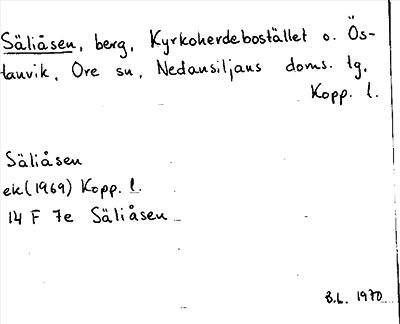 Säliåsen, berg, Kyrkoherdebostället o. Ös-
tanvik, Ore sn, Nedansiljans doms. tg,
Kopp. l.
Säliåsen
ek(1969) Kopp. l.
14 F 7e Säliåsen
B.L. 1970